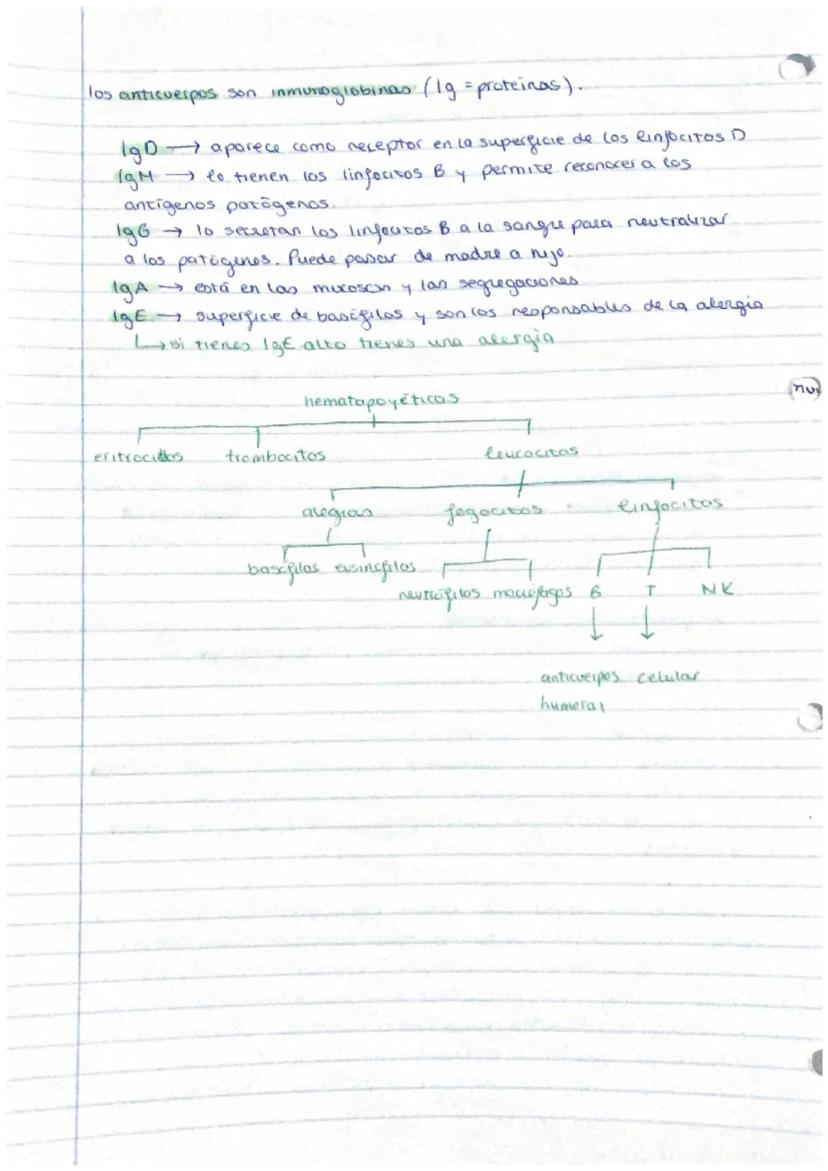 los anticuerpos son inmunoglobinas (Ig = proteínas).
IgD → aparece como receptor en la superficie de los linfocitos D
IgM → lo tienen los linfocitos B y permite reconocer a los
antígenos patógenos.
IgG → lo secretan los linfocitos B a la sangre para neutralizar
a los patógenos. Puede pasar de madre a hijo.
IgA → está en las mucosas y las segregaciones
IgE → superficie de basófilos y son los responsables de la alergia
↳ si tienes IgE alto tienes una alergia
hematopoyéticas
eritrocitos trombocitos leucocitos
alegias fagocitos linfocitos
basófilos eosinófilos
neutrófilos macrófagos B T NK
anticuerpos celular
humoral